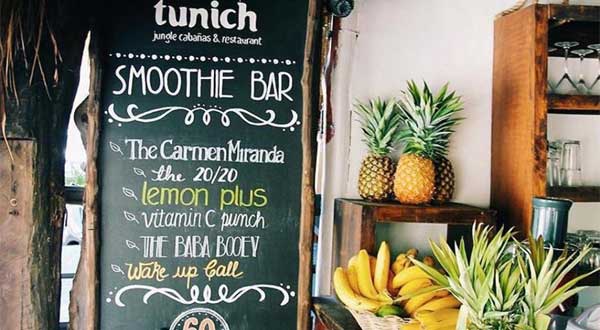 tunich
jungle cabañas & restaurant
SMOOTHIE BAR
The Carmen Miranda
the 20/20
lemon plus
vitamin C punch
THE BABA BOOEY
Wake up Call
60